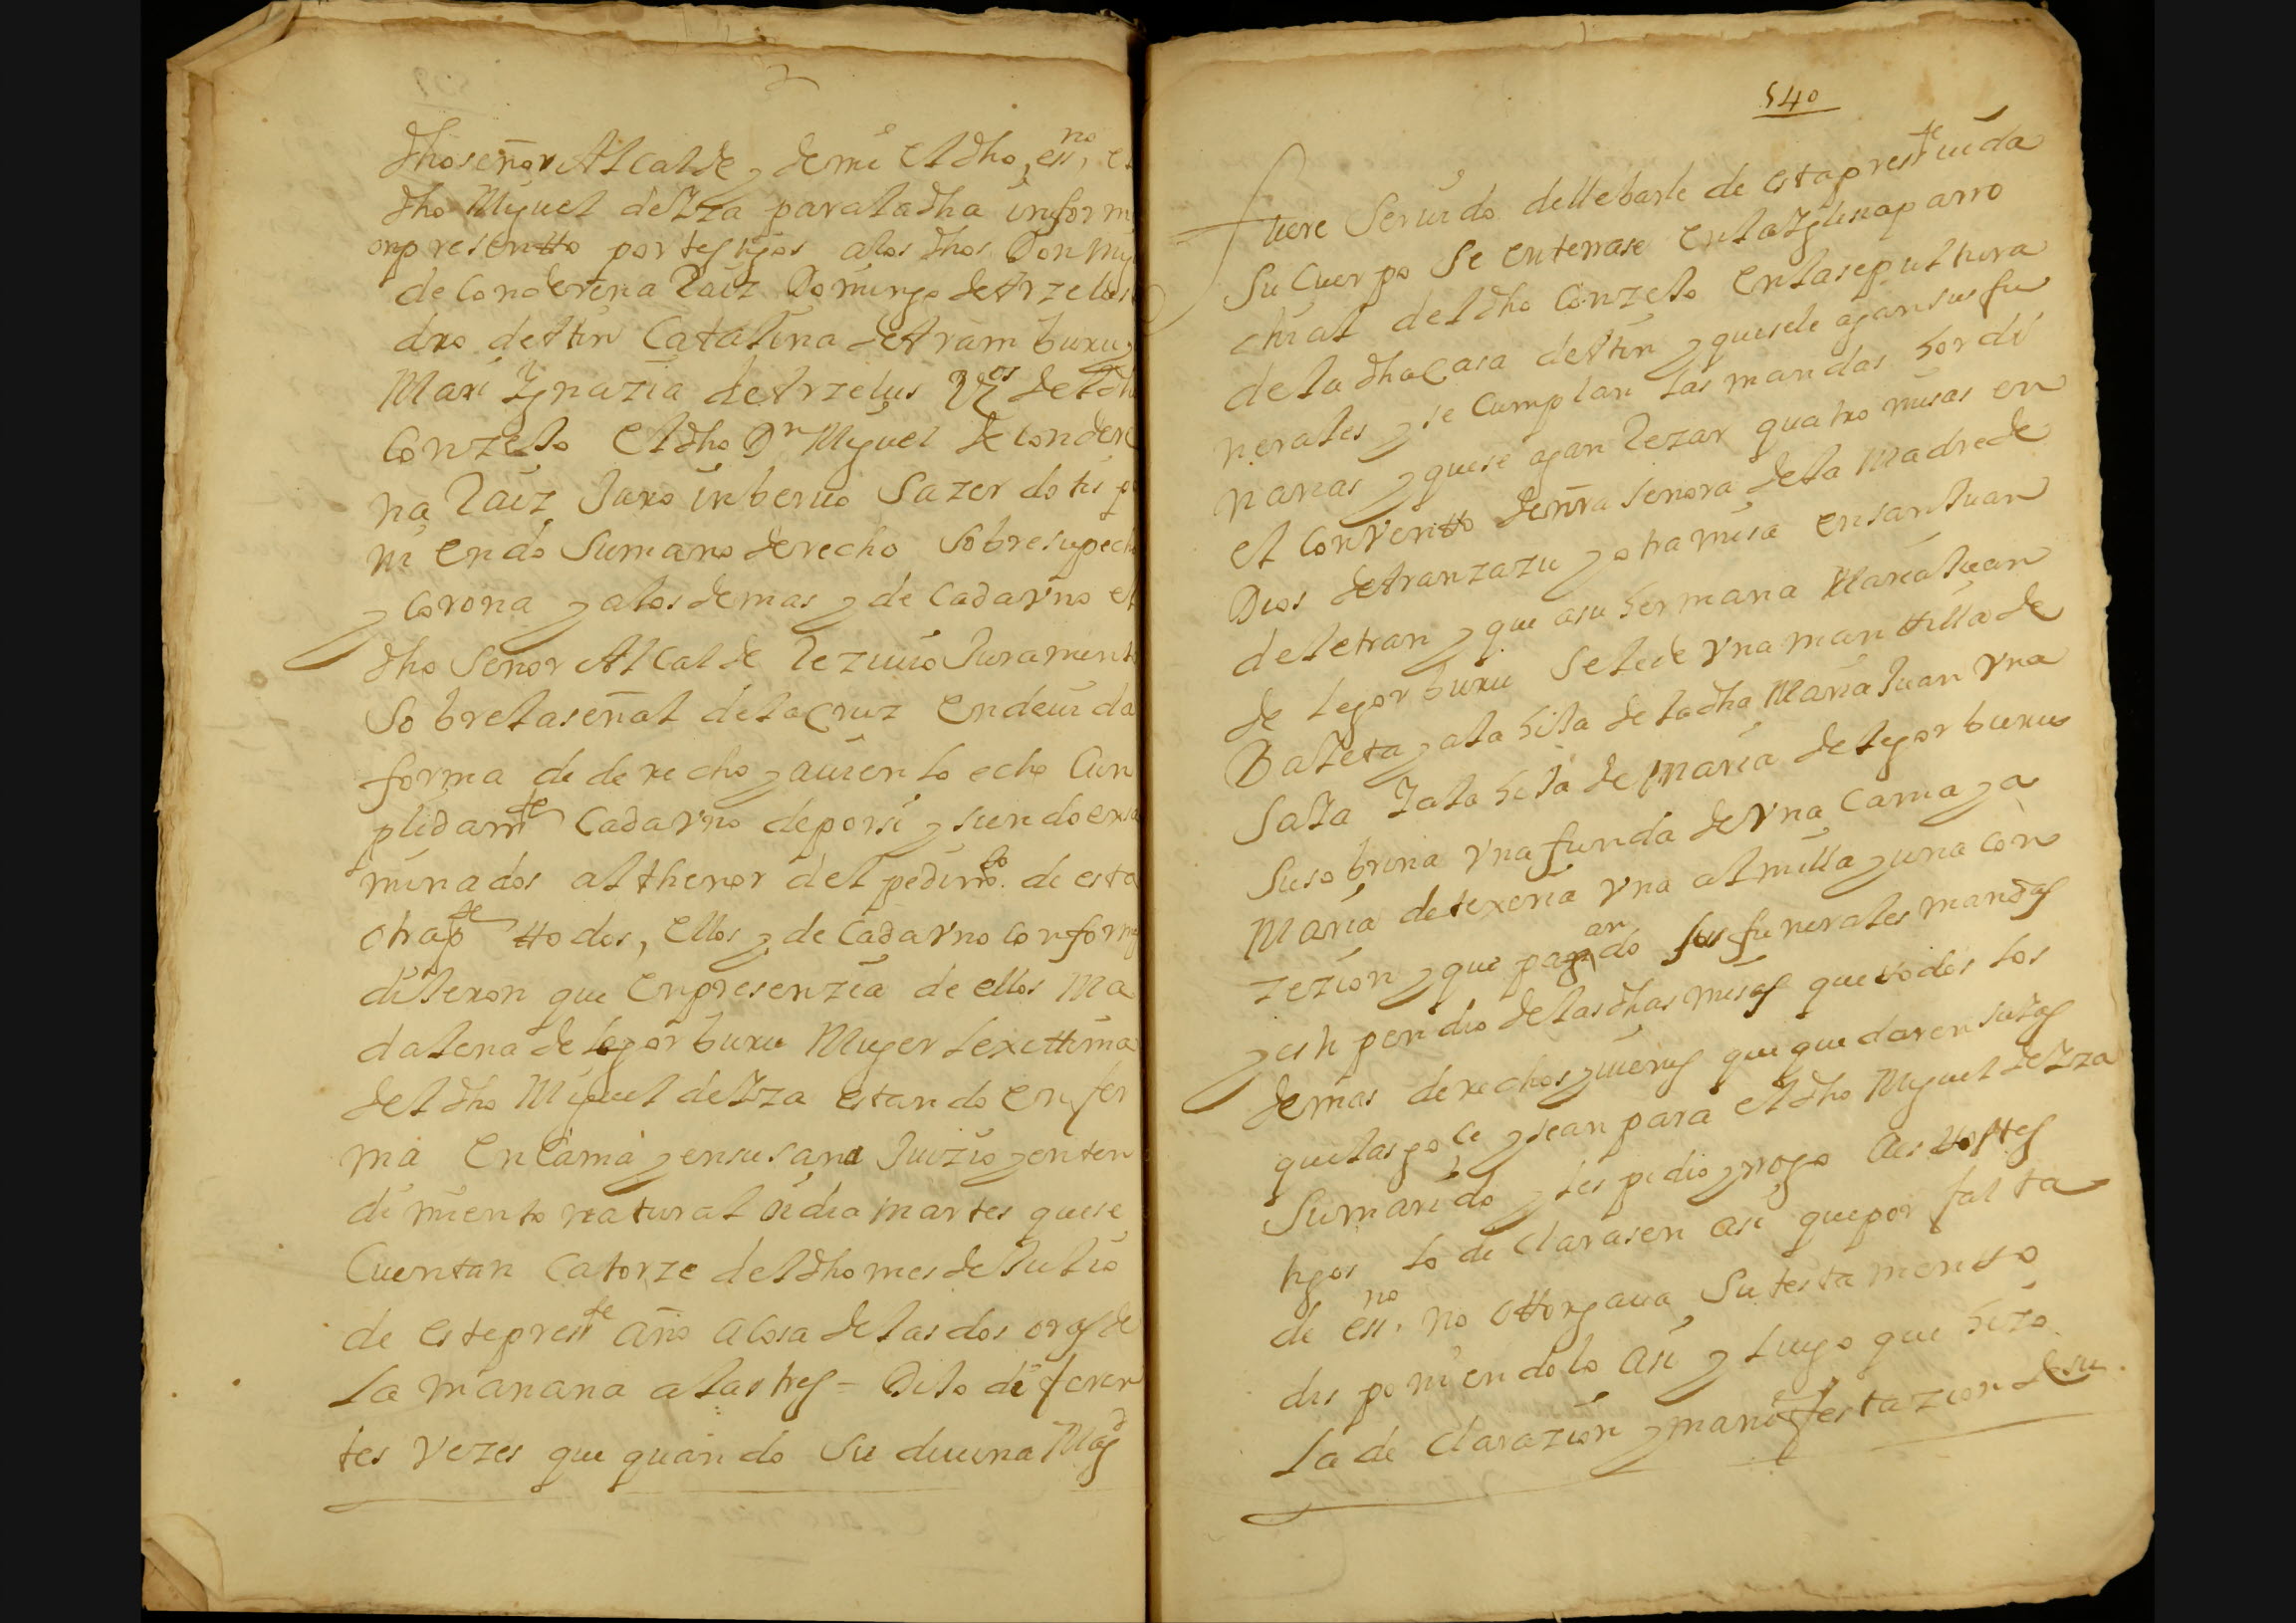 dho señor Alcalde y de mi el dho essno, el
dho Miguel de Yza para la dha inform
on presentto por testigos a los dhos Don Mig
de Conderena Raiz Domingo de Arzelus
dro de Atin Catalina de Aramburu y
Mari Ygnazia de Arzelus Vzos del dh
Conzejo El dho Dn Miguel de Condere
na Raiz Juro in beruo Sazerdotis po
niendo Su mano derecho Sobre su pecho
y Corona y a los demas y de Cada Vno el
dho Señor Alcalde Reziuio Juramento
Sobre la señal de la Cruz En deuida
forma de derecho y auiendo echo Cun
plidamte Cada Vno de por si y siendo exa
minados al thenor del pedimto de esta
otra pte ttodos, Ellos y de Cada Vno conform
dijeron que En presenzia de ellos Ma
dalena de Legorburu Muger Lexittima
del dho Miguel de Yza estando Enfer
ma En Cama y en su sano Juizio y enten
dimiento natural oi dia martes que se
Cuentan Catorze del dho mes de Julio
de este presste Año a Cosa de las dos oras de
La mañana a las tres - Dijo diferen
tes Vezes que quando Su diuina Magd
540
fuere Seruido de llebarle de esta presste uida
Su Cuerpo Se enterrase En la Yglesia parro
chial del dho Conzejo En la sepultura
de la dha Casa de Atin y que se le agan sus fu
nerales y se Cumplan las mandas hordi
narias y que se agan Rezar quatro misas en
el Conventto de nra Señora de la Madre de
Dios de Aranzazu y otra misa en San Juan
de Letran y que a su hermana Maria Juan
de Legorburu Se le de Vna manttilla de
Bayeta y a la hija de la dha Maria Juan Vna
Saya Y a la hija de Maria de Legorburu
Su sobrina Vna funda de Vna Cama y a
Maria de texeria Vna almilla y una con
zezion y que pagando an sus funerales mandas
y estipendio de las dhas misas que ttodos los
demas derechos y uienes que quedaren suyas
que las goce y sean para el dho Miguel de Yza
Su marido y les pidio y rrogo a los ttestes
tigos lo declarasen asi que por falta
de essno. no ottorgaua Su testamentto
disponiendolo Asi y Luego que hizo
La declarazion y manifestazion de su